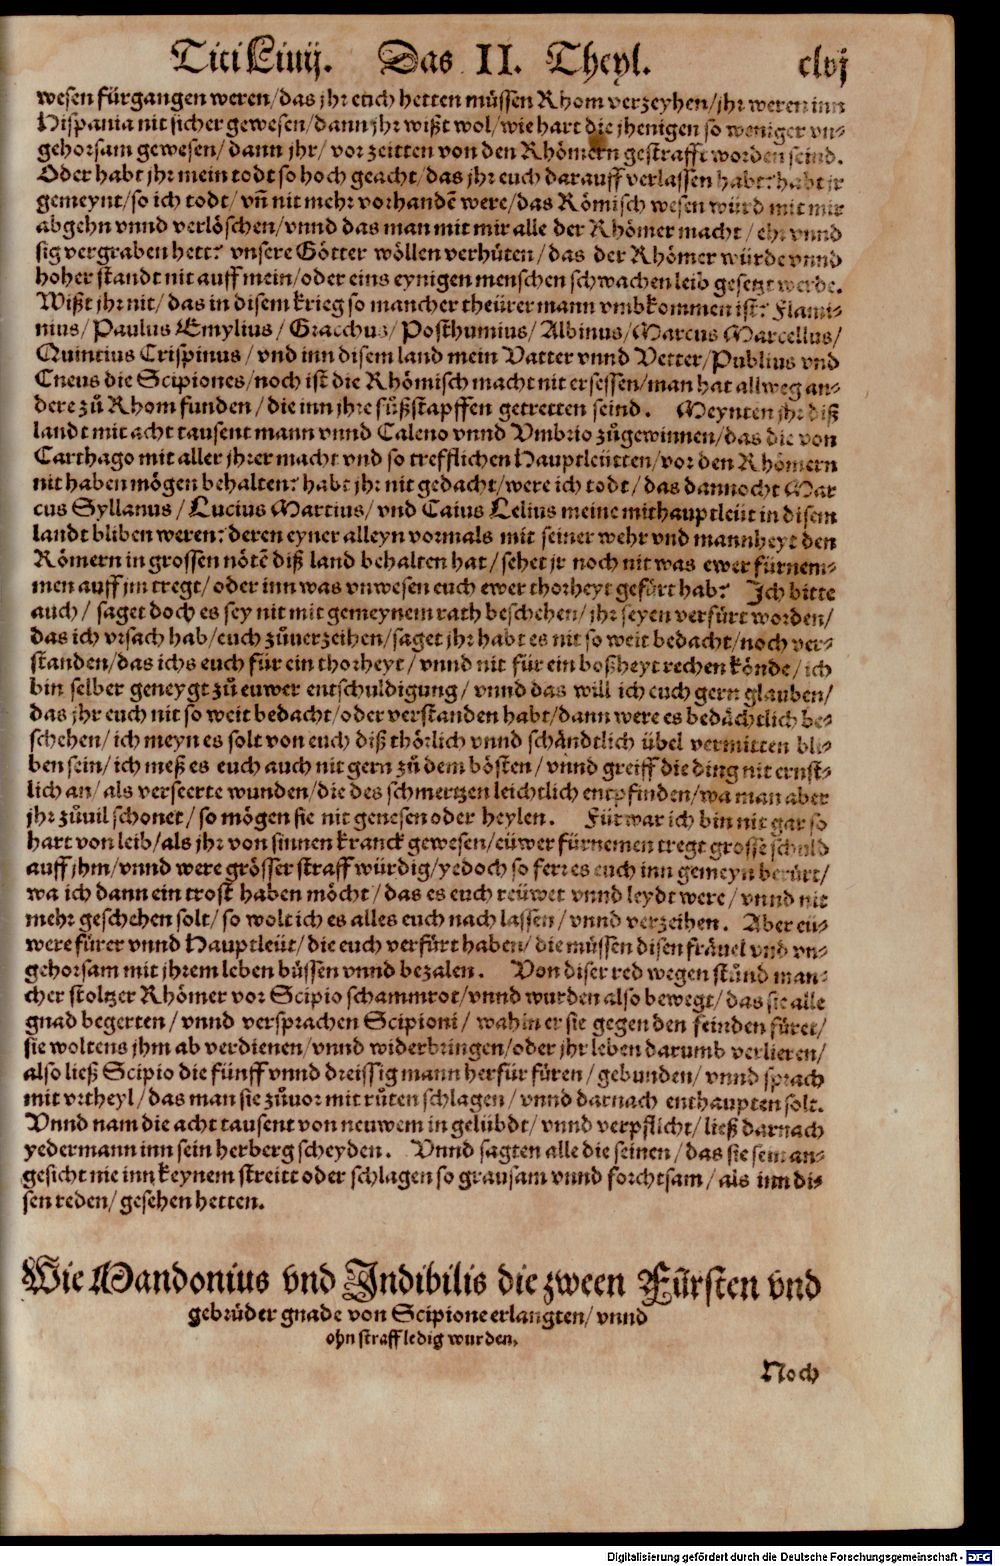 Titi Liuij. Das II. Theyl. clvj
wesen fürgangen weren/das jhr euch hetten müssen Rhom verzeyhen/jhr weren inn
Hispania nit sicher gewesen/dann jhr wißt wol/wie hart die jhenigen so weniger vn-
gehorsam gewesen/dann jhr/vor zeitten von den Rhömern gestrafft worden seind.
Oder habt jhr mein todt so hoch geacht/das jhr euch darauff verlassen habt? habt jr
gemeynt/so ich todt/vñ nit mehr vorhandẽ were/das Römisch wesen würd mit mir
abgehn vnnd verlöschen/vnnd das man mit mir alle der Rhömer macht/ehr vnnd
sig vergraben hett? vnsere Götter wöllen verhüten/das der Rhömer würde vnnd
hoher standt nit auff mein/oder eins eynigen menschen schwachen leib gesetzt werde.
Wißt jhr nit/das in disem krieg so mancher theürer mann vmbkommen ist? Flami-
nius/Paulus Emylius/Gracchus/Posthumius/Albinus/Marcus Marcellus/
Quintius Crispinus/vnd inn disem land mein Vatter vnnd Vetter/Publius vnd
Cneus die Scipiones/noch ist die Rhömisch macht nit ersessen/man hat allweg an-
dere zů Rhom funden/die inn jhre fůßstapffen getretten seind. Meynten jhr diß
landt mit acht tausent mann vnnd Caleno vnnd Vmbrio zůgewinnen/das die von
Carthago mit aller jhrer macht vnd so trefflichen Hauptleütten/vor den Rhömern
nit haben mögen behalten? habt jhr nit gedacht/were ich todt/das dannocht Mar
cus Syllanus/Lucius Martius/vnd Caius Lelius meine mithauptleüt in disem
landt bliben weren? deren eyner alleyn vormals mit seiner wehr vnd mannheyt den
Römern in grossen nötẽ diß land behalten hat/sehet jr noch nit was ewer fürnem-
men auff jm tregt/oder inn was vnwesen euch ewer thorheyt gefürt hab? Ich bitte
auch/saget doch es sey nit mit gemeynem rath beschehen/jhr seyen verfürt worden/
das ich vrsach hab/euch zůuerzeihen/saget jhr habt es nit so weit bedacht/noch ver-
standen/das ichs euch für ein thorheyt/vnnd nit für ein boßheyt rechen könde/ich
bin selber geneygt zů euwer entschuldigung/vnnd das will ich euch gern glauben/
das jhr euch nit so weit bedacht/oder verstanden habt/dann were es bedächtlich be-
schehen/ich meyn es solt von euch diß thörlich vnnd schändtlich übel vermitten bli-
ben sein/ich meß es euch auch nit gern zů dem bösten/vnnd greiff die ding nit ernst-
lich an/als verseerte wunden/die des schmertzen leichtlich entpfinden/wa man aber
jhr zůuil schonet/so mögen sie nit genesen oder heylen. Für war ich bin nit gar so
hart von leib/als jhr von sinnen kranck gewesen/eüwer fürnemen tregt grosse schuld
auff jhm/vnnd were grösser straff würdig/yedoch so ferr es euch inn gemeyn berürt/
wa ich dann ein trost haben möcht/das es euch reüwet vnnd leydt were/vnnd nit
mehr geschehen solt/so wolt ich es alles euch nach lassen/vnnd verzeihen. Aber eü-
were fürer vnnd Hauptleüt/die euch verfürt haben/die müssen disen fräuel vnd vn-
gehorsam mit jhrem leben büssen vnnd bezalen. Von diser red wegen stůnd man-
cher stoltzer Rhömer vor Scipio schammrot/vnnd wurden also bewegt/das sie alle
gnad begerten/vnnd versprachen Scipioni/wahin er sie gegen den feinden füret/
sie woltens jhm ab verdienen/vnnd widerbringen/oder jhr leben darumb verlieren/
also ließ Scipio die fünff vnnd dreissig mann herfür füren/gebunden/vnnd sprach
mit vrtheyl/das man sie zůuor mit růten schlagen/vnnd darnach enthaupten solt.
Vnnd nam die acht tausent von neuwem in gelübdt/vnnd verpflicht/ließ darnach
yedermann inn sein herberg scheyden. Vnnd sagten alle die seinen/das sie sein an-
gesicht nie inn keynem streitt oder schlagen so grausam vnnd forchtsam/als inn di-
sen reden/gesehen hetten.
Wie Mandonius vnd Indibilis die zween Fürsten vnd
gebrüder gnade von Scipione erlangten/vnnd
ohn straff ledig wurden.
Noch
Digitalisierung gefördert durch die Deutsche Forschungsgemeinschaft - DFG